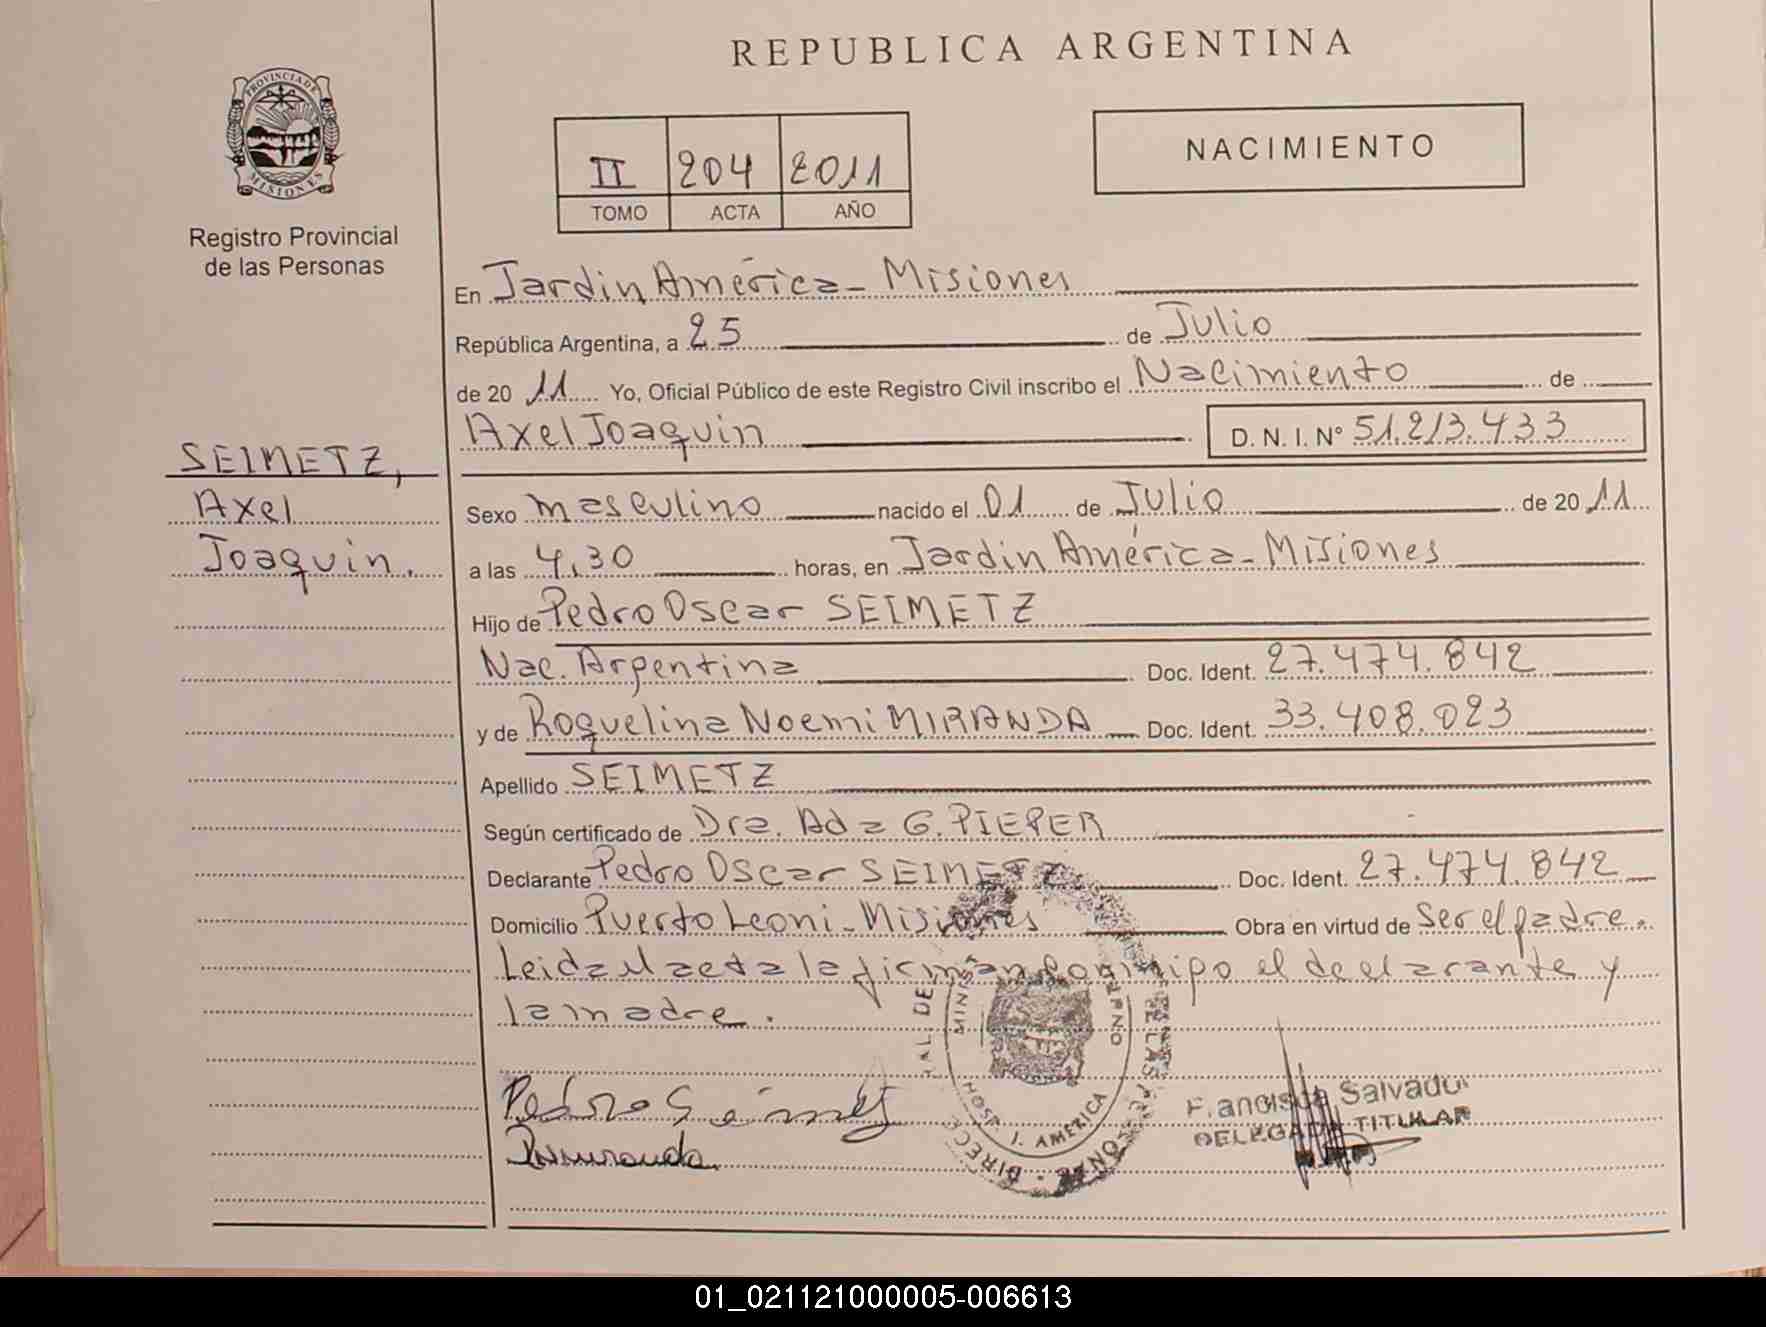 REPUBLICA ARGENTINA
PROVINCIA DE
MISIONES
Registro Provincial
de las Personas
II 204 2011
TOMO ACTA AÑO
NACIMIENTO
En Jardin América - Misiones
República Argentina, a 25 de Julio
de 20 11 Yo, Oficial Público de este Registro Civil inscribo el Nacimiento de
Axel Joaquin D. N. I. N° 51.213.433
SEIMETZ,
Axel
Joaquin.
Sexo masculino nacido el 01 de Julio de 20 11
a las 4,30 horas, en Jardin América - Misiones
Hijo de Pedro Oscar SEIMETZ
Nac. Argentina Doc. Ident. 27.474.842
y de Roquelina Noemi MIRANDA Doc. Ident. 33.408.023
Apellido SEIMETZ
Según certificado de Dra. Ada G. PIEPER
Declarante Pedro Oscar SEIMETZ Doc. Ident. 27.474.842
Domicilio Puerto Leoni - Misiones Obra en virtud de Ser el padre.
Leida el acta la firman conmigo el declarante y
la madre.
Pedro Seimetz
HOSP. J. AMERICA
Francisca Salvador
DELEGADA TITULAR
01_021121000005-006613